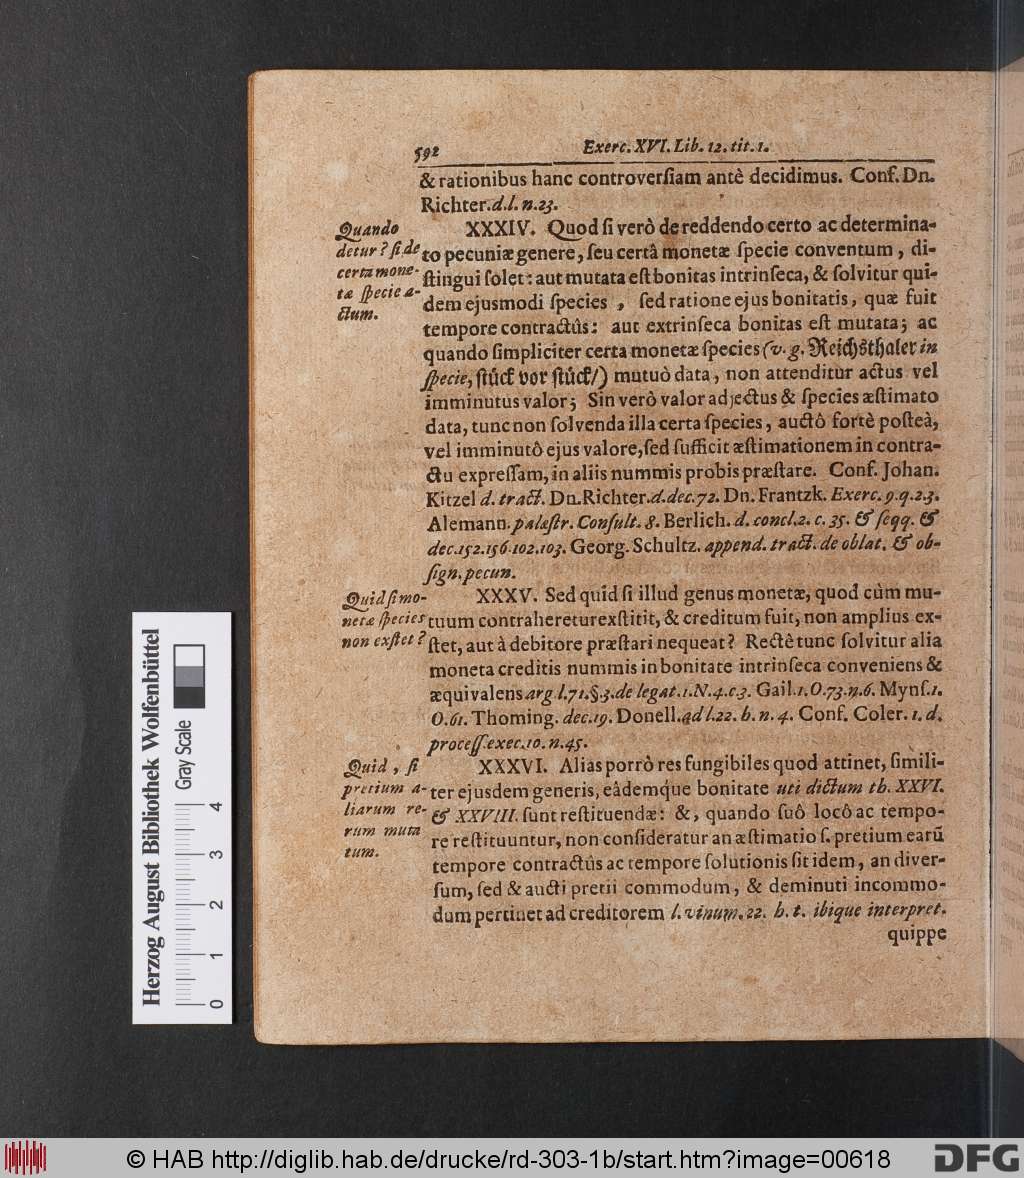 592
Exerc. XVI. Lib. 12. tit. 1.
& rationibus hanc controverſiam antè decidimus. Conf. Dn.
Richter. d. l. n. 23.
Quando
detur? ſi de
certa mone-
tæ ſpecie a-
ctum.
XXXIV. Quod ſi verò de reddendo certo ac determina-
to pecuniæ genere, ſeu certâ monetæ ſpecie conventum, di-
ſtingui ſolet: aut mutata eſt bonitas intrinſeca, & ſolvitur qui-
dem ejusmodi ſpecies, ſed ratione ejus bonitatis, quæ fuit
tempore contractûs: aut extrinſeca bonitas eſt mutata; ac
quando ſimpliciter certa monetæ ſpecies (v. g. Reichsthaler in
ſpecie, ſtůck vor ſtůck/) mutuò data, non attenditur actus vel
imminutus valor; Sin verò valor adjectus & ſpecies æſtimato
data, tunc non ſolvenda illa certa ſpecies, auctô fortè poſteà,
vel imminutô ejus valore, ſed ſufficit æſtimationem in contra-
ctu expreſſam, in aliis nummis probis præſtare. Conf. Johan.
Kitzel d. tract. Dn. Richter. d. dec. 72. Dn. Frantzk. Exerc. 9. q. 23.
Alemann. palæſtr. Conſult. 8. Berlich. d. concl. 2. c. 35. & ſeqq. &
dec. 152. 156. 102. 103. Georg. Schultz. append. tract. de oblat. & ob-
ſign. pecun.
Quid ſi mo-
netæ ſpecies
non exſtet?
XXXV. Sed quid ſi illud genus monetæ, quod cùm mu-
tuum contrahereturexſtitit, & creditum fuit, non amplius ex-
ſtet, aut à debitore præſtari nequeat? Rectè tunc ſolvitur alia
moneta creditis nummis in bonitate intrinſeca conveniens &
æquivalens arg l. 71. §. 3. de legat. 1. N. 4. c 3. Gail. 1. O. 73. n. 6. Mynſ. 1.
O. 61. Thoming. dec. 19. Donell. ad l. 22. h. n. 4. Conf. Coler. 1. d.
proceſſ. exec. 10. n. 45.
Quid, ſi
pretium a-
liarum re-
rum muta
tum.
XXXVI. Alias porrò res fungibiles quod attinet, ſimili-
ter ejusdem generis, eâdemque bonitate uti dictum th. XXVI.
& XXVIII. ſunt reſtituendæ: &, quando ſuô locô ac tempo-
re reſtituuntur, non conſideratur an æſtimatio ſ. pretium earū
tempore contractûs ac tempore ſolutionis ſit idem, an diver-
ſum, ſed & aucti pretii commodum, & deminuti incommo-
dum pertinet ad creditorem l. vinum. 22. h. t. ibique interpret.
quippe
Herzog August Bibliothek Wolfenbüttel
Gray Scale
0 1 2 3 4
© HAB http://diglib.hab.de/drucke/rd-303-1b/start.htm?image=00618
DFG